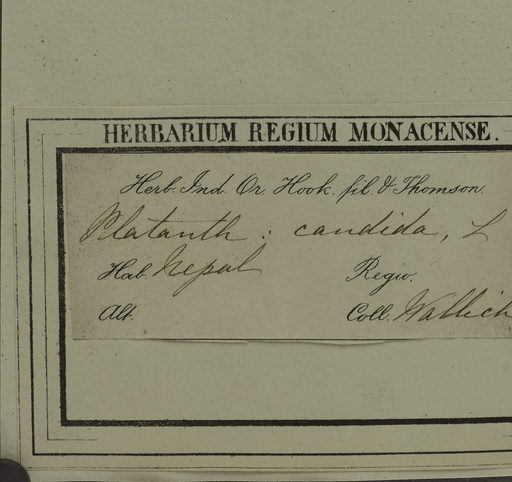 HERBARIUM REGIUM MONACENSE.
Herb. Ind. Or. Hook. fil. & Thomson.
Platanth: candida, L
Hab. Nepal Regio.
Alt. Coll. Wallich